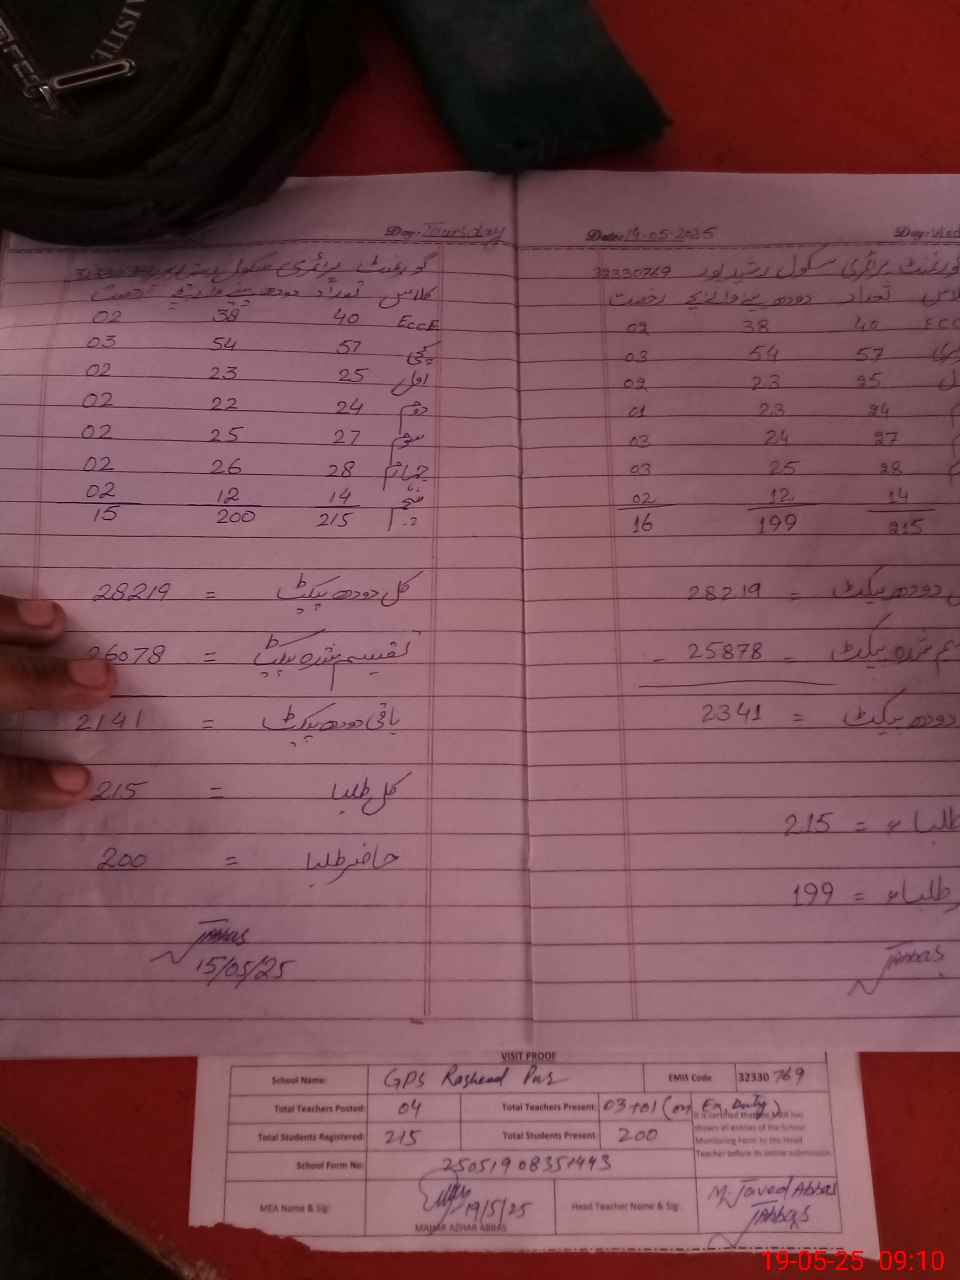 Day: Thursday
گورنمنٹ پرائمری سکول
کلاس تعداد دودھ پینے والے بچے رخصت
ECCE 40 38 02
کچی 57 54 03
اول 25 23 02
دوم 24 22 02
سوم 27 25 02
چہارم 28 26 02
پنجم 14 12 02
215 200 15
کل دودھ پیکٹ = 28219
تقسیم شدہ پیکٹ = 26078
باقی دودھ پیکٹ = 2141
کل طلبا = 215
حاضر طلبا = 200
JAbbas
15/05/25
Date: 14-05-2025 Day:
گورنمنٹ پرائمری سکول رشید پور 32330769
تعداد دودھ پینے والے بچے رخصت
40 38 02
57 54 03
25 23 02
24 23 01
27 24 03
28 25 03
14 12 02
215 199 16
دودھ پیکٹ = 28219
شدہ پیکٹ = 25878 -
دودھ پیکٹ = 2341
طلباء = 215
طلباء = 199
JAbbas
VISIT PROOF
School Name: GPS Rasheed Pur EMIS Code 32330 769
Total Teachers Posted: 04 Total Teachers Present: 03+01 (on Ex. Duty)
Total Students Registered: 215 Total Students Present 200
It is certified that the MEA has
shown in entries of the School
Monitoring Form to the Head
Teacher before its online submission.
School Form No: 25051908351443
MEA Name & Sig: 19/5/25 Head Teacher Name & Sig: M. Javed Abbas
MAHAR AZHAR ABBAS JAbbas
19-05-25 09:10